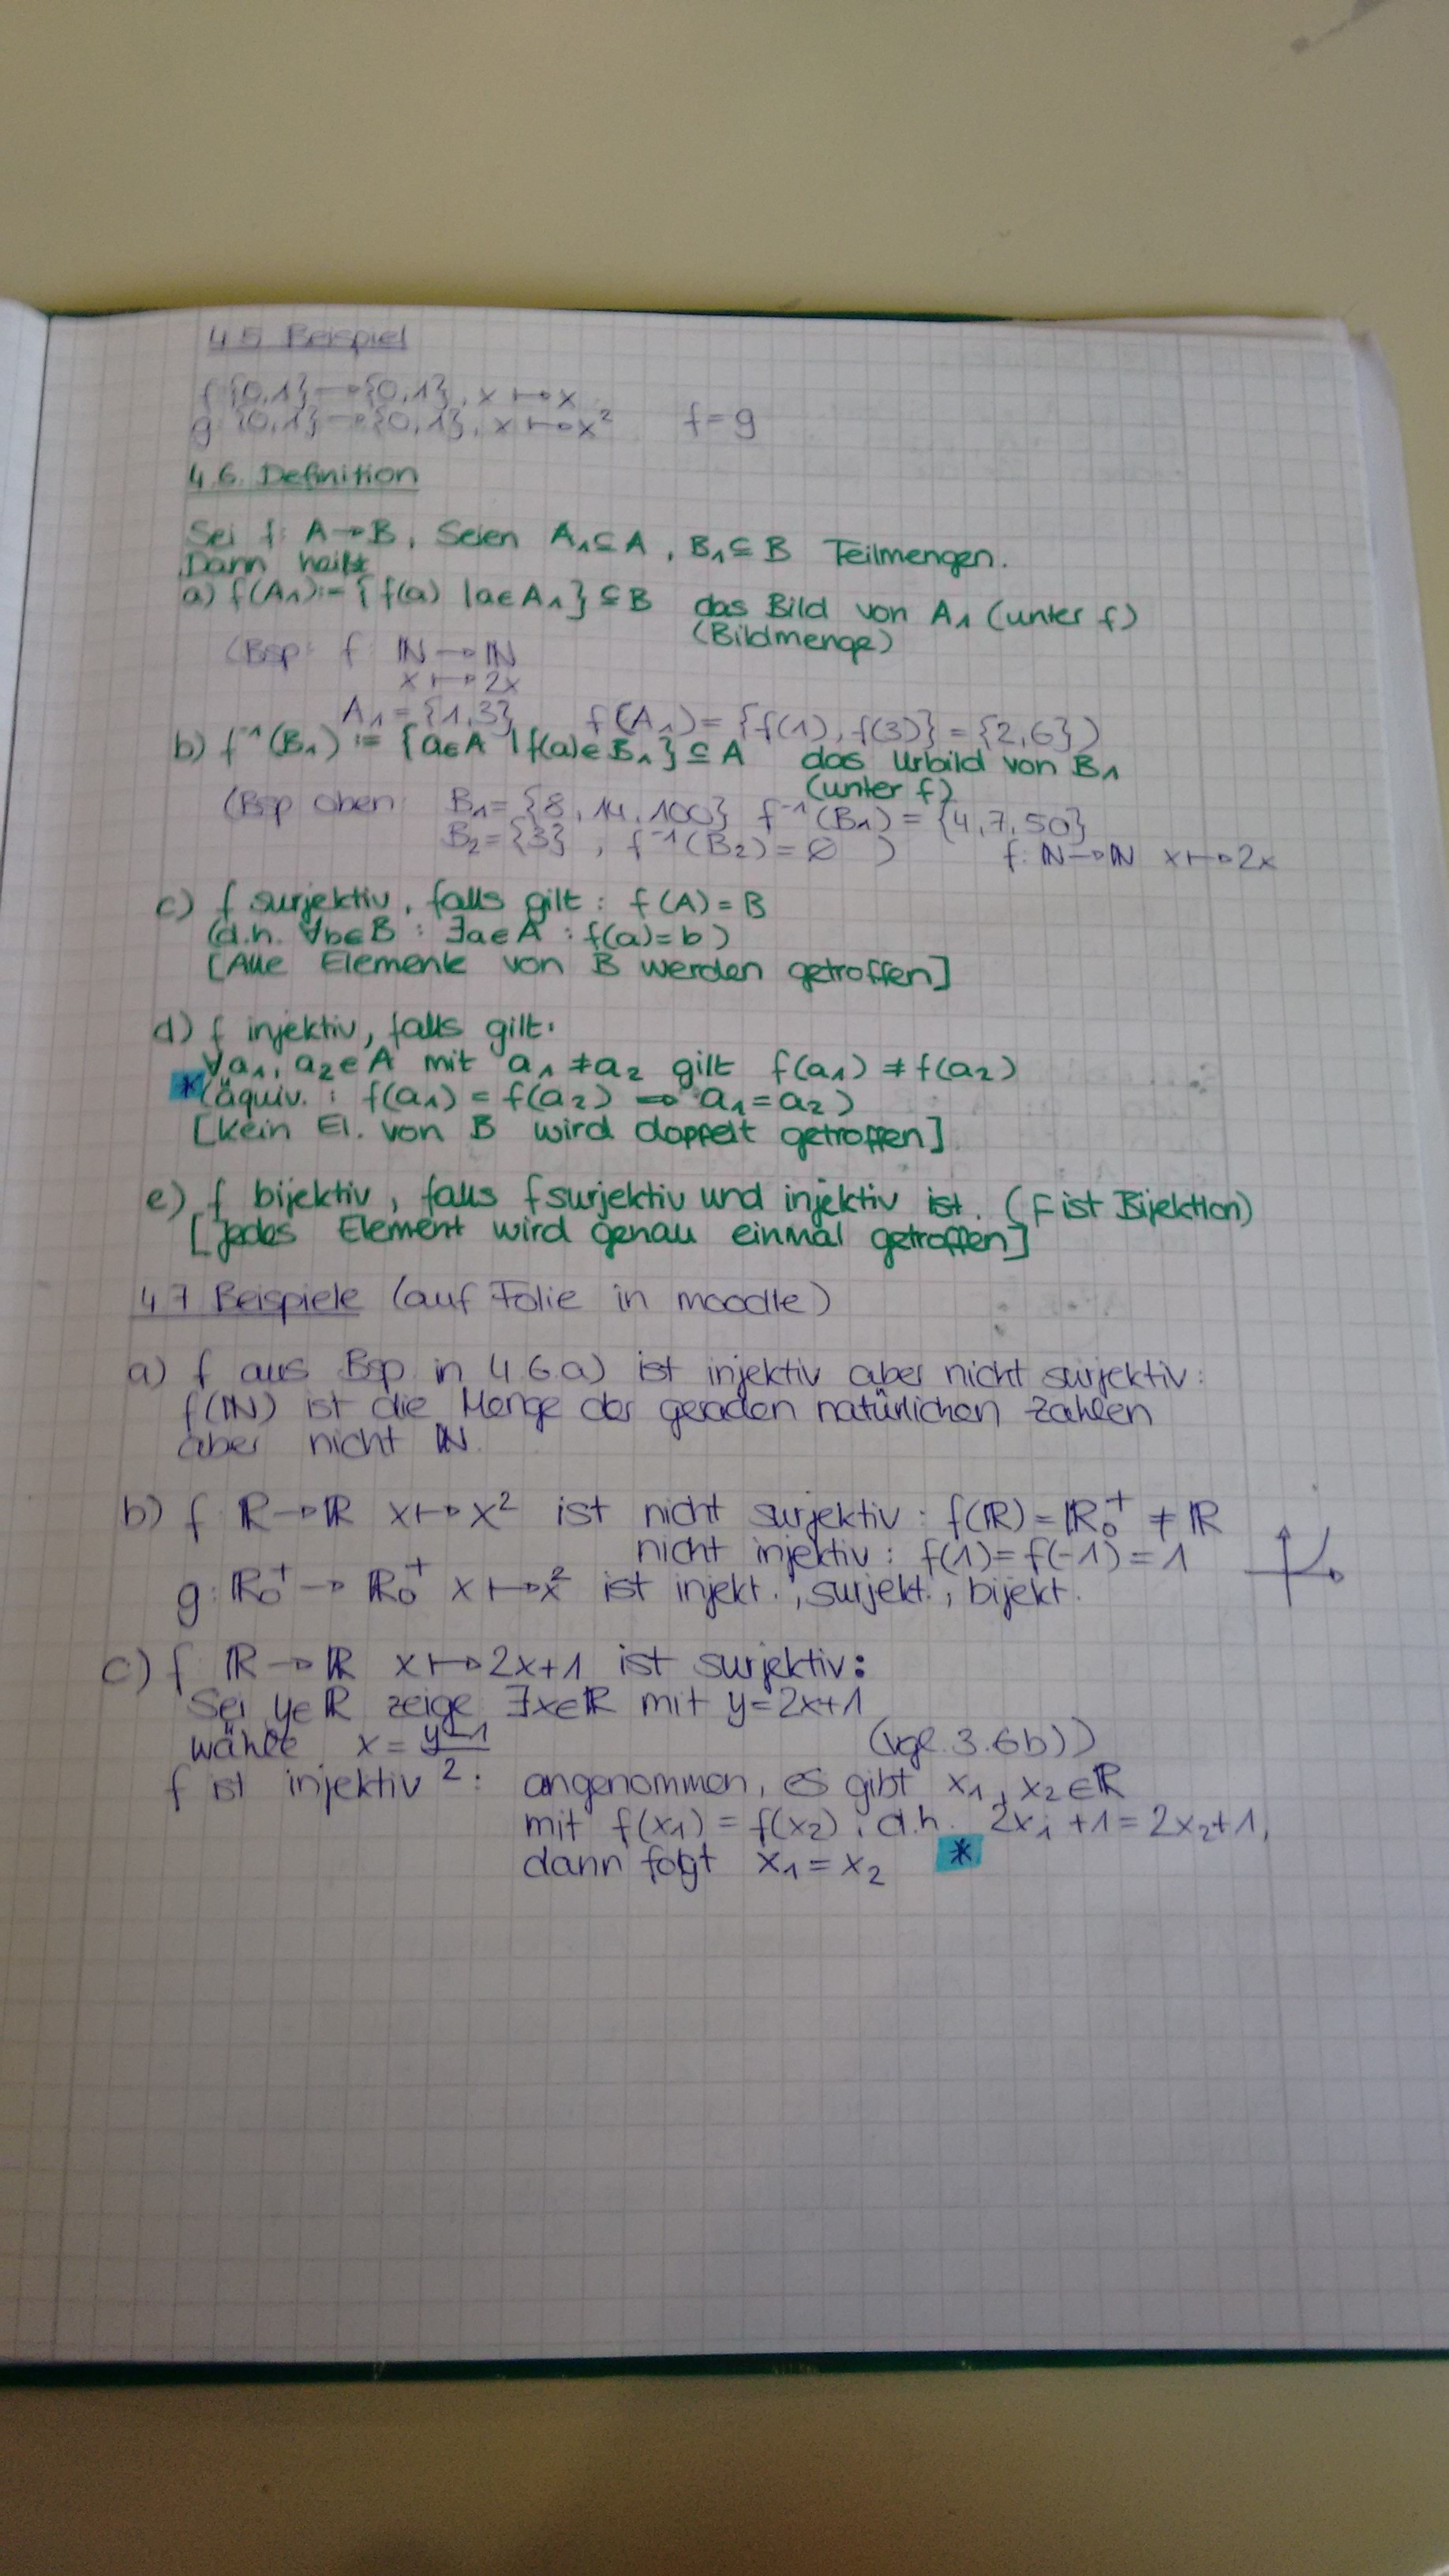 4.5 Beispiel
f: {0,1} → {0,1}, x ↦ x
g: {0,1} → {0,1}, x ↦ x² f = g
4.6. Definition
Sei f: A → B, Seien A₁ ⊆ A, B₁ ⊆ B Teilmengen.
Dann heißt
a) f(A₁) := {f(a) | a ∈ A₁} ⊆ B das Bild von A₁ (unter f)
(Bildmenge)
(Bsp: f: ℕ → ℕ
x ↦ 2x
A₁ = {1,3} f(A₁) = {f(1), f(3)} = {2,6})
b) f⁻¹(B₁) := {a ∈ A | f(a) ∈ B₁} ⊆ A das Urbild von B₁
(unter f)
(Bsp oben: B₁ = {8, 14, 100} f⁻¹(B₁) = {4, 7, 50}
B₂ = {3}, f⁻¹(B₂) = ∅ ) f: ℕ → ℕ x ↦ 2x
c) f surjektiv, falls gilt: f(A) = B
(d.h. ∀b∈B : ∃a∈A : f(a) = b)
[Alle Elemente von B werden getroffen]
d) f injektiv, falls gilt:
∀a₁, a₂ ∈ A mit a₁ ≠ a₂ gilt f(a₁) ≠ f(a₂)
* (äquiv.: f(a₁) = f(a₂) ⇒ a₁ = a₂)
[Kein El. von B wird doppelt getroffen]
e) f bijektiv, falls f surjektiv und injektiv ist. (f ist Bijektion)
[Jedes Element wird genau einmal getroffen]
4.7 Beispiele (auf Folie in moodle)
a) f aus Bsp in 4.6.a) ist injektiv aber nicht surjektiv:
f(ℕ) ist die Menge der geraden natürlichen Zahlen
aber nicht ℕ.
b) f: ℝ → ℝ x ↦ x² ist nicht surjektiv: f(ℝ) = ℝ₀⁺ ≠ ℝ
nicht injektiv: f(1) = f(-1) = 1
g: ℝ₀⁺ → ℝ₀⁺ x ↦ x² ist injekt., surjekt., bijekt.
c) f: ℝ → ℝ x ↦ 2x+1 ist surjektiv:
Sei y∈ℝ zeige ∃x∈ℝ mit y = 2x+1
wähle x = (y-1)/2 (vgl. 3.6b))
f ist injektiv: angenommen, es gibt x₁, x₂ ∈ ℝ
mit f(x₁) = f(x₂), d.h. 2x₁+1 = 2x₂+1,
dann folgt x₁ = x₂ *